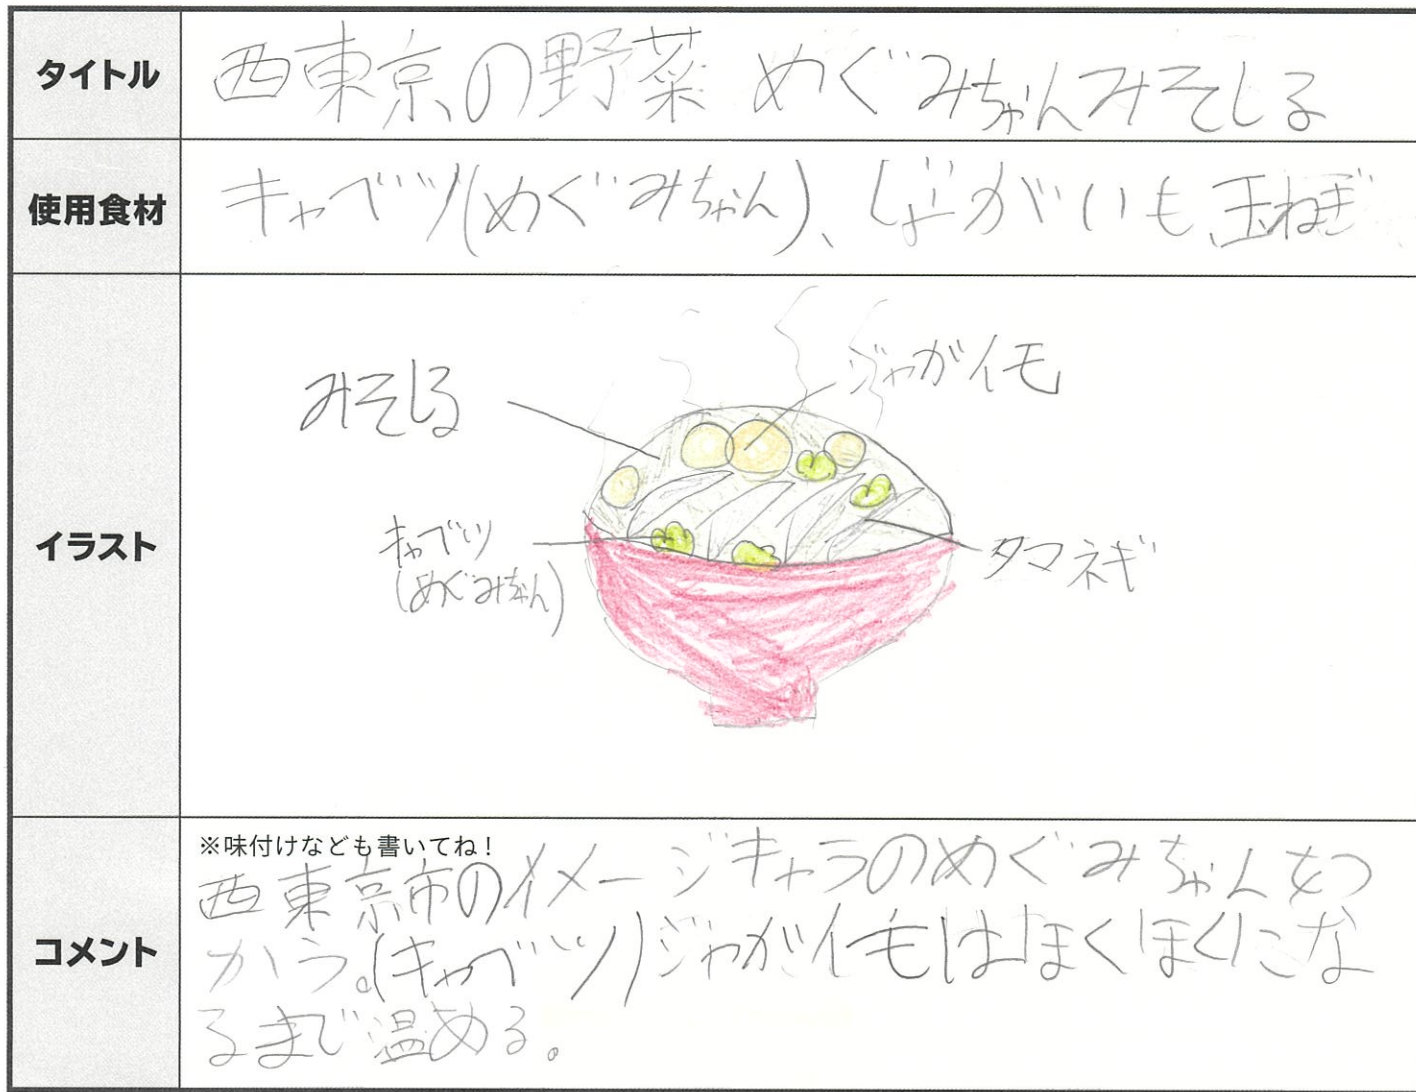 タイトル
西東京の野菜 めぐみちゃんみそしる
使用食材
キャベツ(めぐみちゃん)、じゃがいも、玉ねぎ
イラスト
みそしる
ジャがイモ
キャベツ
(めぐみちゃん)
タマネギ
コメント
※味付けなども書いてね！
西東京市のイメージキャラのめぐみちゃんをつ
かう。(キャベツ)ジャがイモはほくほくにな
るまで温める。